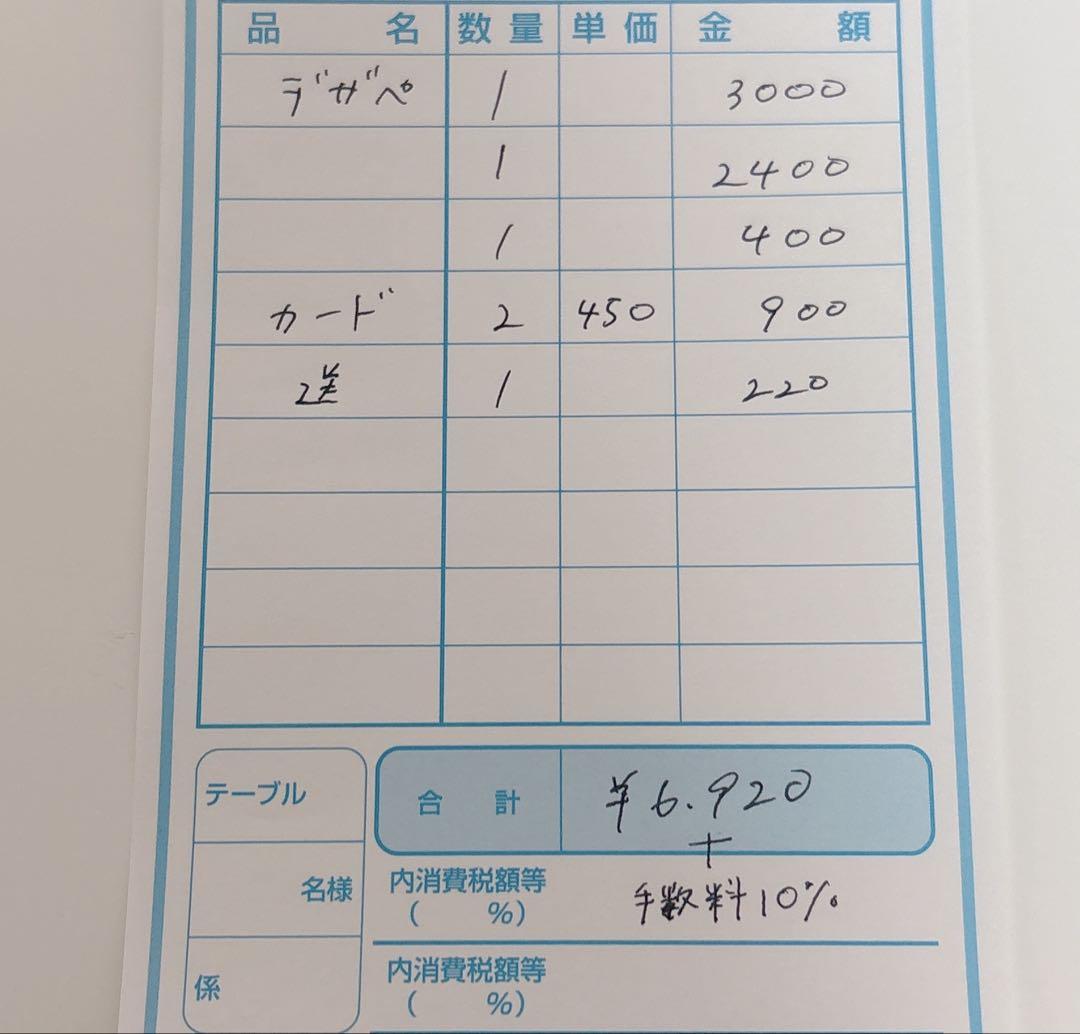 品名 数量 単価 金額
デザペ 1 3000
1 2400
1 400
カード 2 450 900
送 1 220
テーブル
合計 ¥6.920
+
名様
内消費税額等
( %)
手数料10%
係
内消費税額等
( %)